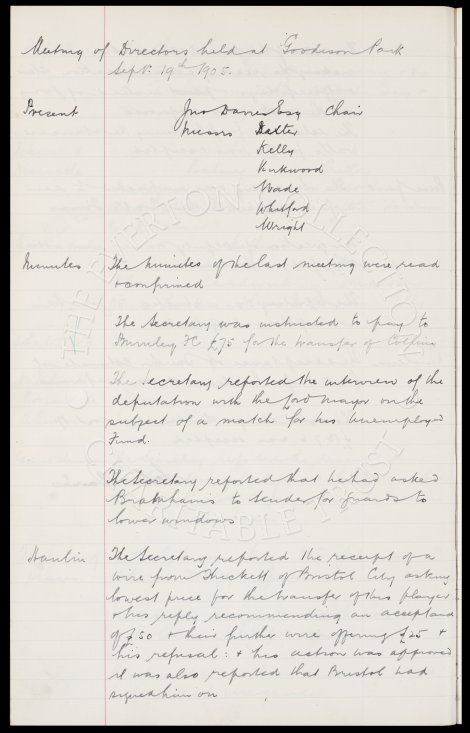 Meeting of Directors held at Goodison Park
Sept. 19th 1905.
Present Jno Davies Esq Chair
Messrs Baxter
Kelly
Kirkwood
Wade
Whitford
Wright
Minutes The minutes of the last meeting were read
& confirmed
The Secretary was instructed to pay to
Burnley FC £75 for the transfer of
The Secretary reported the interview of the
deputation with the Lord Mayor on the
subject of a match for his Unemployed
Fund.
The Secretary reported that he had asked
to tender for guards to
lower windows
The Secretary reported the receipt of a
wire from Thickett of Bristol City asking
lowest price for the transfer of this player
& his reply recommending an acceptance
of £50 & their further wire offering £25 &
his refusal : & his action was approved
it was also reported that Bristol had
signed him on
THE EVERTON COLLECTION
CHARITABLE TRUST